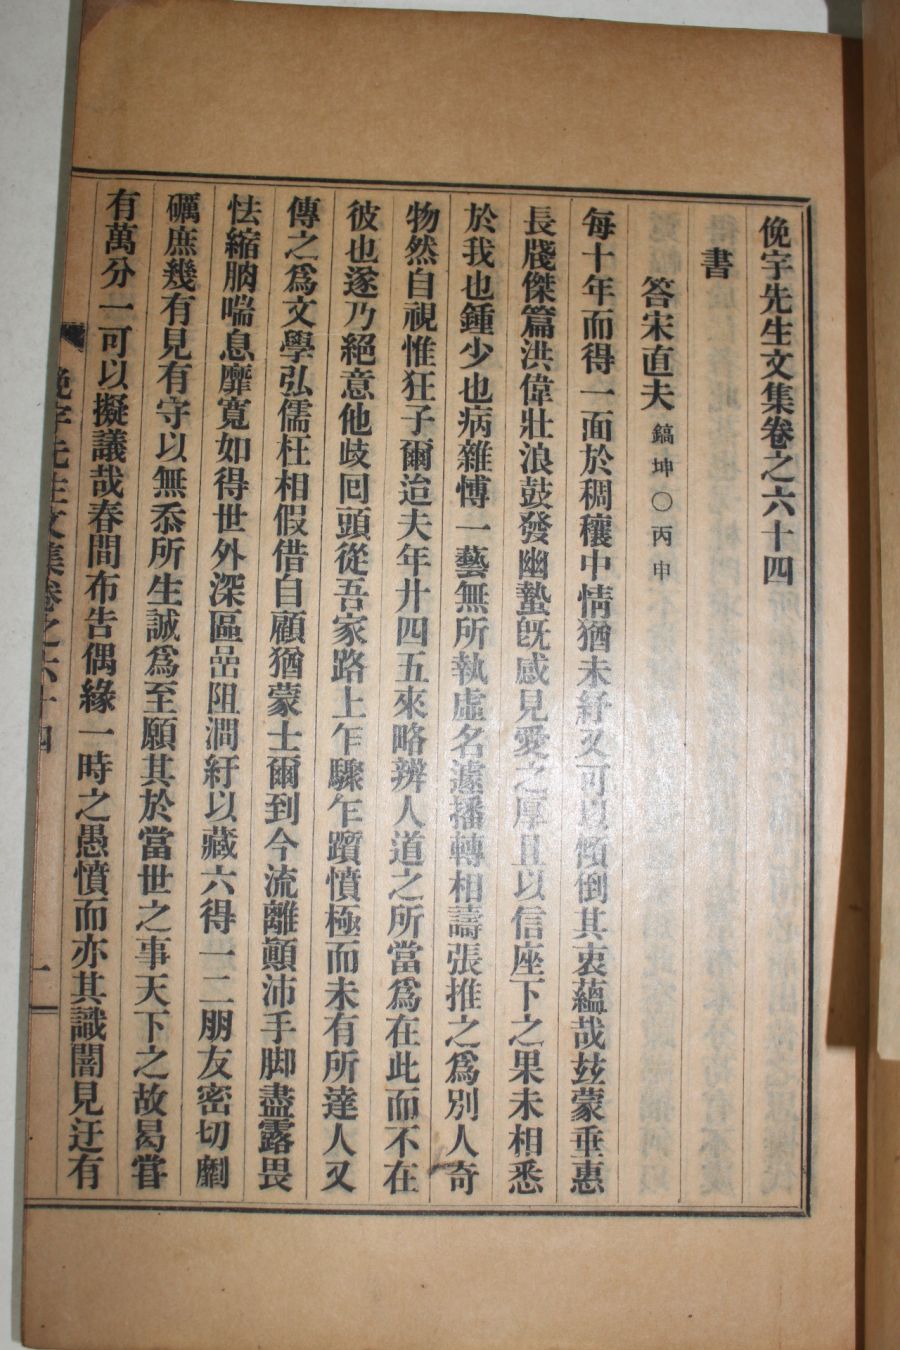 俛宇先生文集卷之六十四
書
答宋直夫 鎬坤○丙申
每十年而得一面於稠穰中情猶未紓又可以傾倒其衷蘊哉玆蒙垂惠
長牋傑篇洪偉壯浪鼓發幽蟄旣感見愛之厚且以信座下之果未相悉
於我也鍾少也病雜博一藝無所執虛名濾播轉相譸張推之爲別人奇
物然自視惟狂子爾迨夫年廾四五來略辨人道之所當爲在此而不在
彼也遂乃絕意他歧回頭從吾家路上乍驟乍躓憤極而未有所達人又
傳之爲文學弘儒枉相假借自顧猶蒙士爾到今流離顚沛手脚盡露畏
怯縮朒喘息靡寬如得世外深區嵒阻澗紆以藏六得一二朋友密切劘
礪庶幾有見有守以無忝所生誠爲至願其於當世之事天下之故曷嘗
有萬分一可以擬議哉春間布告偶緣一時之愚憤而亦其識闇見迂有
俛宇先生文集卷之六十四
一